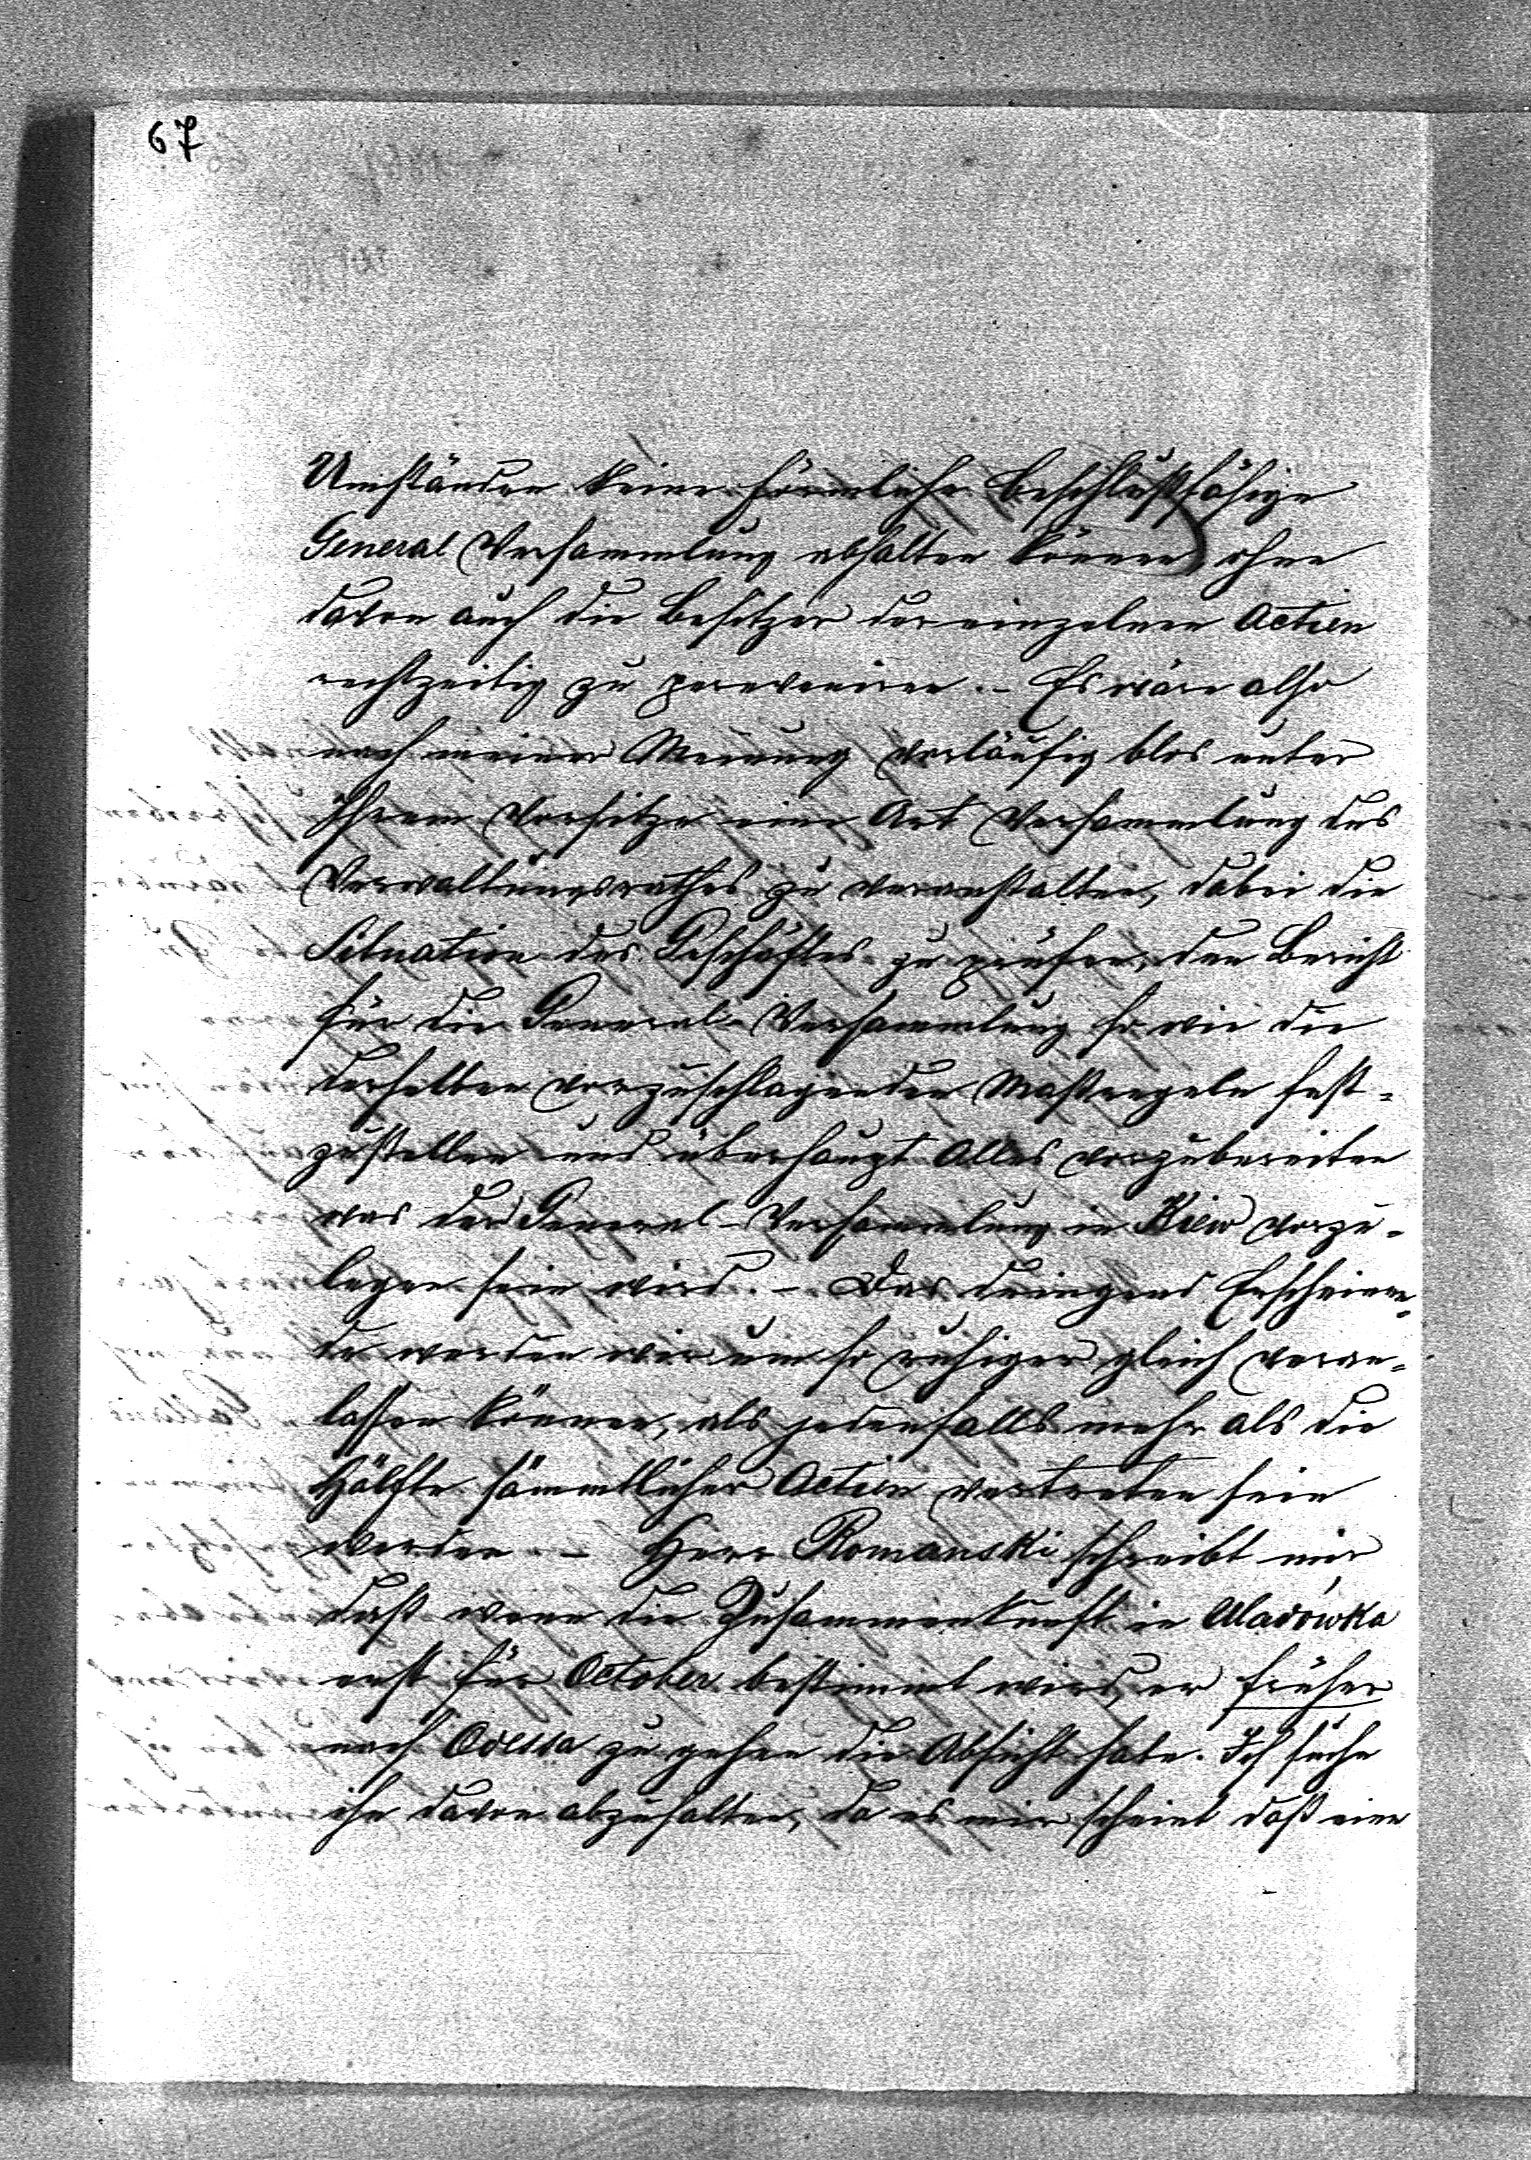 67
Umständen keine förmliche beschlußfähige
General Versammlung abhalten können ohne
davon auch die Besitzer der einzelnen Actien
rechtzeitig zu preveniren. – Es wäre also
nach meiner Meinung vorläufig blos unter
Ihrem Vorsitze eine Art Versammlung des
Verwaltungsrathes zu veranstalten, dabei die
Situation des Geschäftes zu prüfen, den Bericht
für die General-Versammlung so wie die
derselben vorzuschlagenden Maßregeln fest-
zustellen und überhaupt Alles vorzubereiten
was der General-Versammlung in Kiew vorzu-
legen sein wird. – Das dringend Erscheinen-
de werden wir um so ruhiger gleich veran-
lassen können, als jedenfalls mehr als die
Hälfte sämmtlicher Actien vertreten sein
werden – Herr Romanski schreibt mir
daß wenn die Zusammenkunft in
erst für October bestimmt wird, er früher
nach Odessa zu gehen die Absicht habe. Ich suche
ihn davon abzuhalten, da es mir scheint daß eine